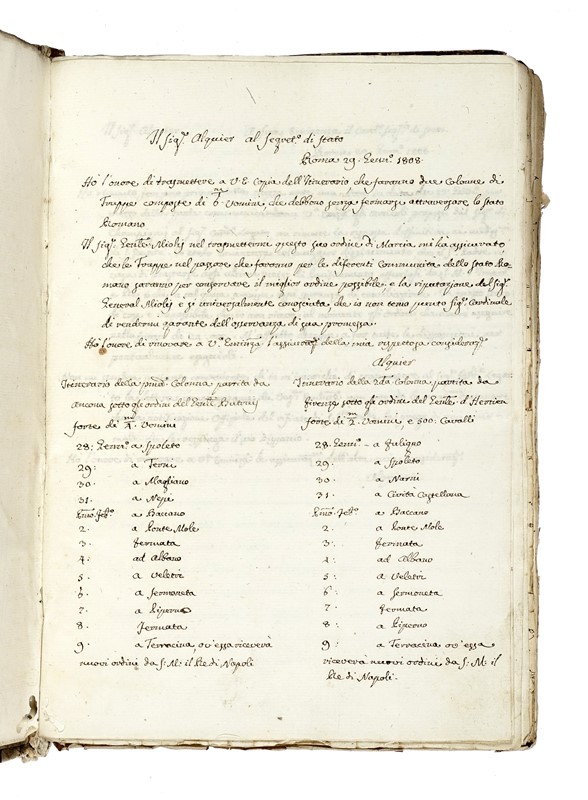 Il Sigr. Alquier al Segret.o di Stato
Roma 29. Genn.o 1808.
Ho l'onore di trasmettere a V. E. Copia dell'Itinerario che faranno due Colonne di
Truppe composte di 6m Uomini, che debbono senza fermarsi attraversare lo Stato
Romano
Il Sigr. Genle. Miolis nel trasmettermi questo suo ordine di Marcia, mi ha assicurato
che le Truppe nel passare che faranno per le differenti Communità dello Stato Ro-
mano saranno per conservare il miglior ordine possibile, e la riputazione del Sigr.
General Miolis è sì universalmente conosciuta, che io non temo punto Sigr. Cardinale
di rendermi garante dell'osservanza di sua promessa.
Ho l'onore di rinovare a V. Eminza l'assicurazne della mia rispettosa considerazne
Alquier
Itinerario della prima Colonna partita da
Ancona sotto gli ordini del Genle.
forte di 4m Uomini
28: Genn.o a Spoleto
29: a Terni
30. a Magliano
31. a Nepi
Primo Feb.o a Baccano
2. a Ponte Mole
3. fermata
4: ad Albano
5. a Veletri
6. a Sermoneta
7. a Piperno
8. fermata
9. a Terracina, ov'essa riceverà
nuovi ordini da S: M: il Re di Napoli
Itinerario della 2da Colonna partita da
Firenze sotto gli ordini del Genle. d'Herrien
forte di 2m Uomini e 500. Cavalli
28. Genn.o a Fuligno
29. a Spoleto
30. a Narni
31 a Civita Castellana
Primo Feb.o a Baccano
2. a Ponte Mole
3. fermata
4: ad Albano
5: a Veletri
6: a Sermoneta
7. fermata
8. a Piperno
9: a Terracina ov'essa
riceverà nuovi ordini da S: M: il
Re di Napoli.